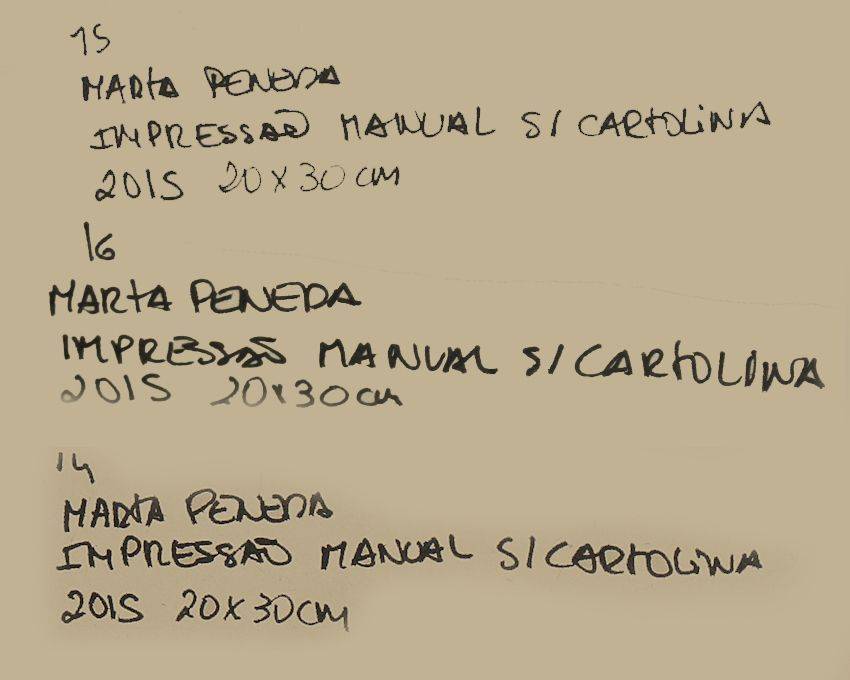 15
MARTA PENEDA
IMPRESSÃO MANUAL S/ CARTOLINA
2015 20X30CM
16
MARTA PENEDA
IMPRESSÃO MANUAL S/ CARTOLINA
2015 20X30cm
14
MARTA PENEDA
IMPRESSÃO MANUAL S/ CARTOLINA
2015 20X30CM